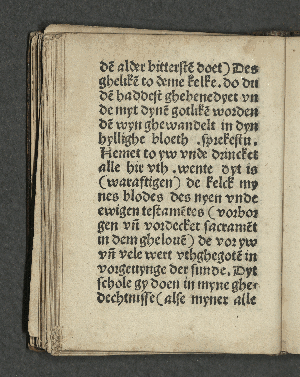 dē alder bitterstē doet) Des
ghelikē to deme kelke. do du
dē haddest ghebenedyet vn
de myt dynē gotlikē worden
dē wyn ghewandelt in dyn
hyllighe bloeth . sprekestu.
Nemet to yw vnde drincket
alle hir vth .wente dyt is
(waraftigen) de kelck my
nes blodes des nyen vnde
ewigen testamētes (vorbor
gen vñ vordecket sacramēt
in dem ghelouē) de vor yw
vñ vele wert vthghegotē in
vorgeuynge der sunde. Dyt
schole gy doen in myne ghe-
dechtnisse (alse myner alle